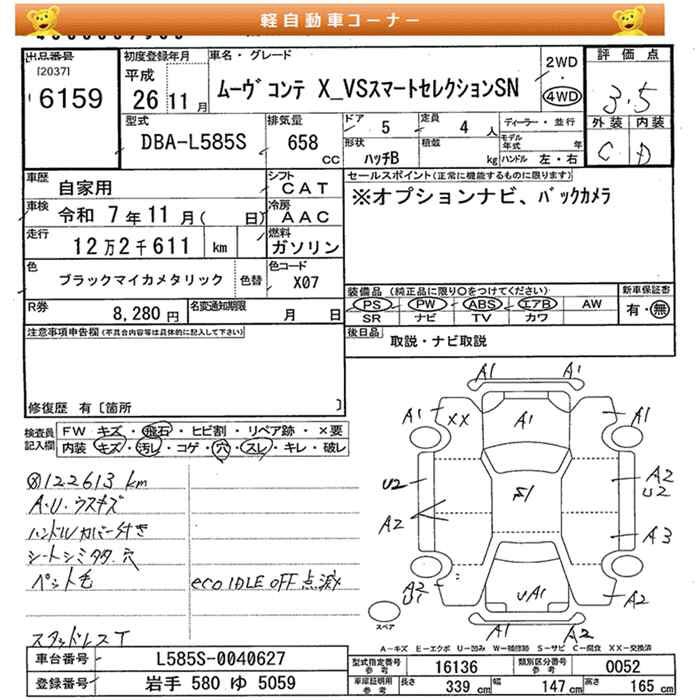 軽自動車コーナー
出品番号
[2037]
6159
初度登録年月
平成
26 11 月
車名・グレード
ムーヴ コンテ X_VSスマートセレクションSN
2WD
・
4WD
評価点
3.5
外装 内装
C D
型式
DBA-L585S
排気量
658
CC
ドア
5
定員
4 人
ディーラー・並行
モデル
年式 年
形状
ハッチB
積載
kg
ハンドル 左・右
車歴
自家用
シフト
CAT
車検
令和 7 年 11 月( 日)
冷房
AAC
走行
12 万 2 千 611 km
燃料
ガソリン
色
ブラックマイカメタリック
色替
色コード
X07
セールスポイント(正常に機能するものに限ります)
※オプションナビ、バックカメラ
R券
8,280 円
名変通知期限
月 日
装備品(純正品に限り○をつけてください)
PS PW ABS エアB AW
SR ナビ TV カワ
新車保証書
有・無
後日品
取説・ナビ取説
注意事項申告欄(不具合内容等は具体的に記入して下さい)
修復歴 有〔箇所 〕
検査員
記入欄
FW キズ・飛石・ヒビ割・リペア跡・×要
内装 キズ・汚レ・コゲ・穴・スレ・キレ・破レ
122613 km
A.U.ウスキズ
ハンドルカバー付き
シートシミタタ穴
ペット毛
eco IDLE OFF 点滅
スタッドレスT
A1 A1
A1 XX A1 A1
U2 S1 A2
U2
A2 A3
A2
U1 UA1 A2
A1 A2
スペア
A-キズ E-エクボ U-凹み W-補修跡 S-サビ C-腐食 XX-交換済
車台番号
L585S-0040627
登録番号
岩手 580 ゆ 5059
型式指定番号
参考
16136
類別区分番号
参考
0052
車庫証明用
参考
長さ
339 cm
幅
147 cm
高さ
165 cm